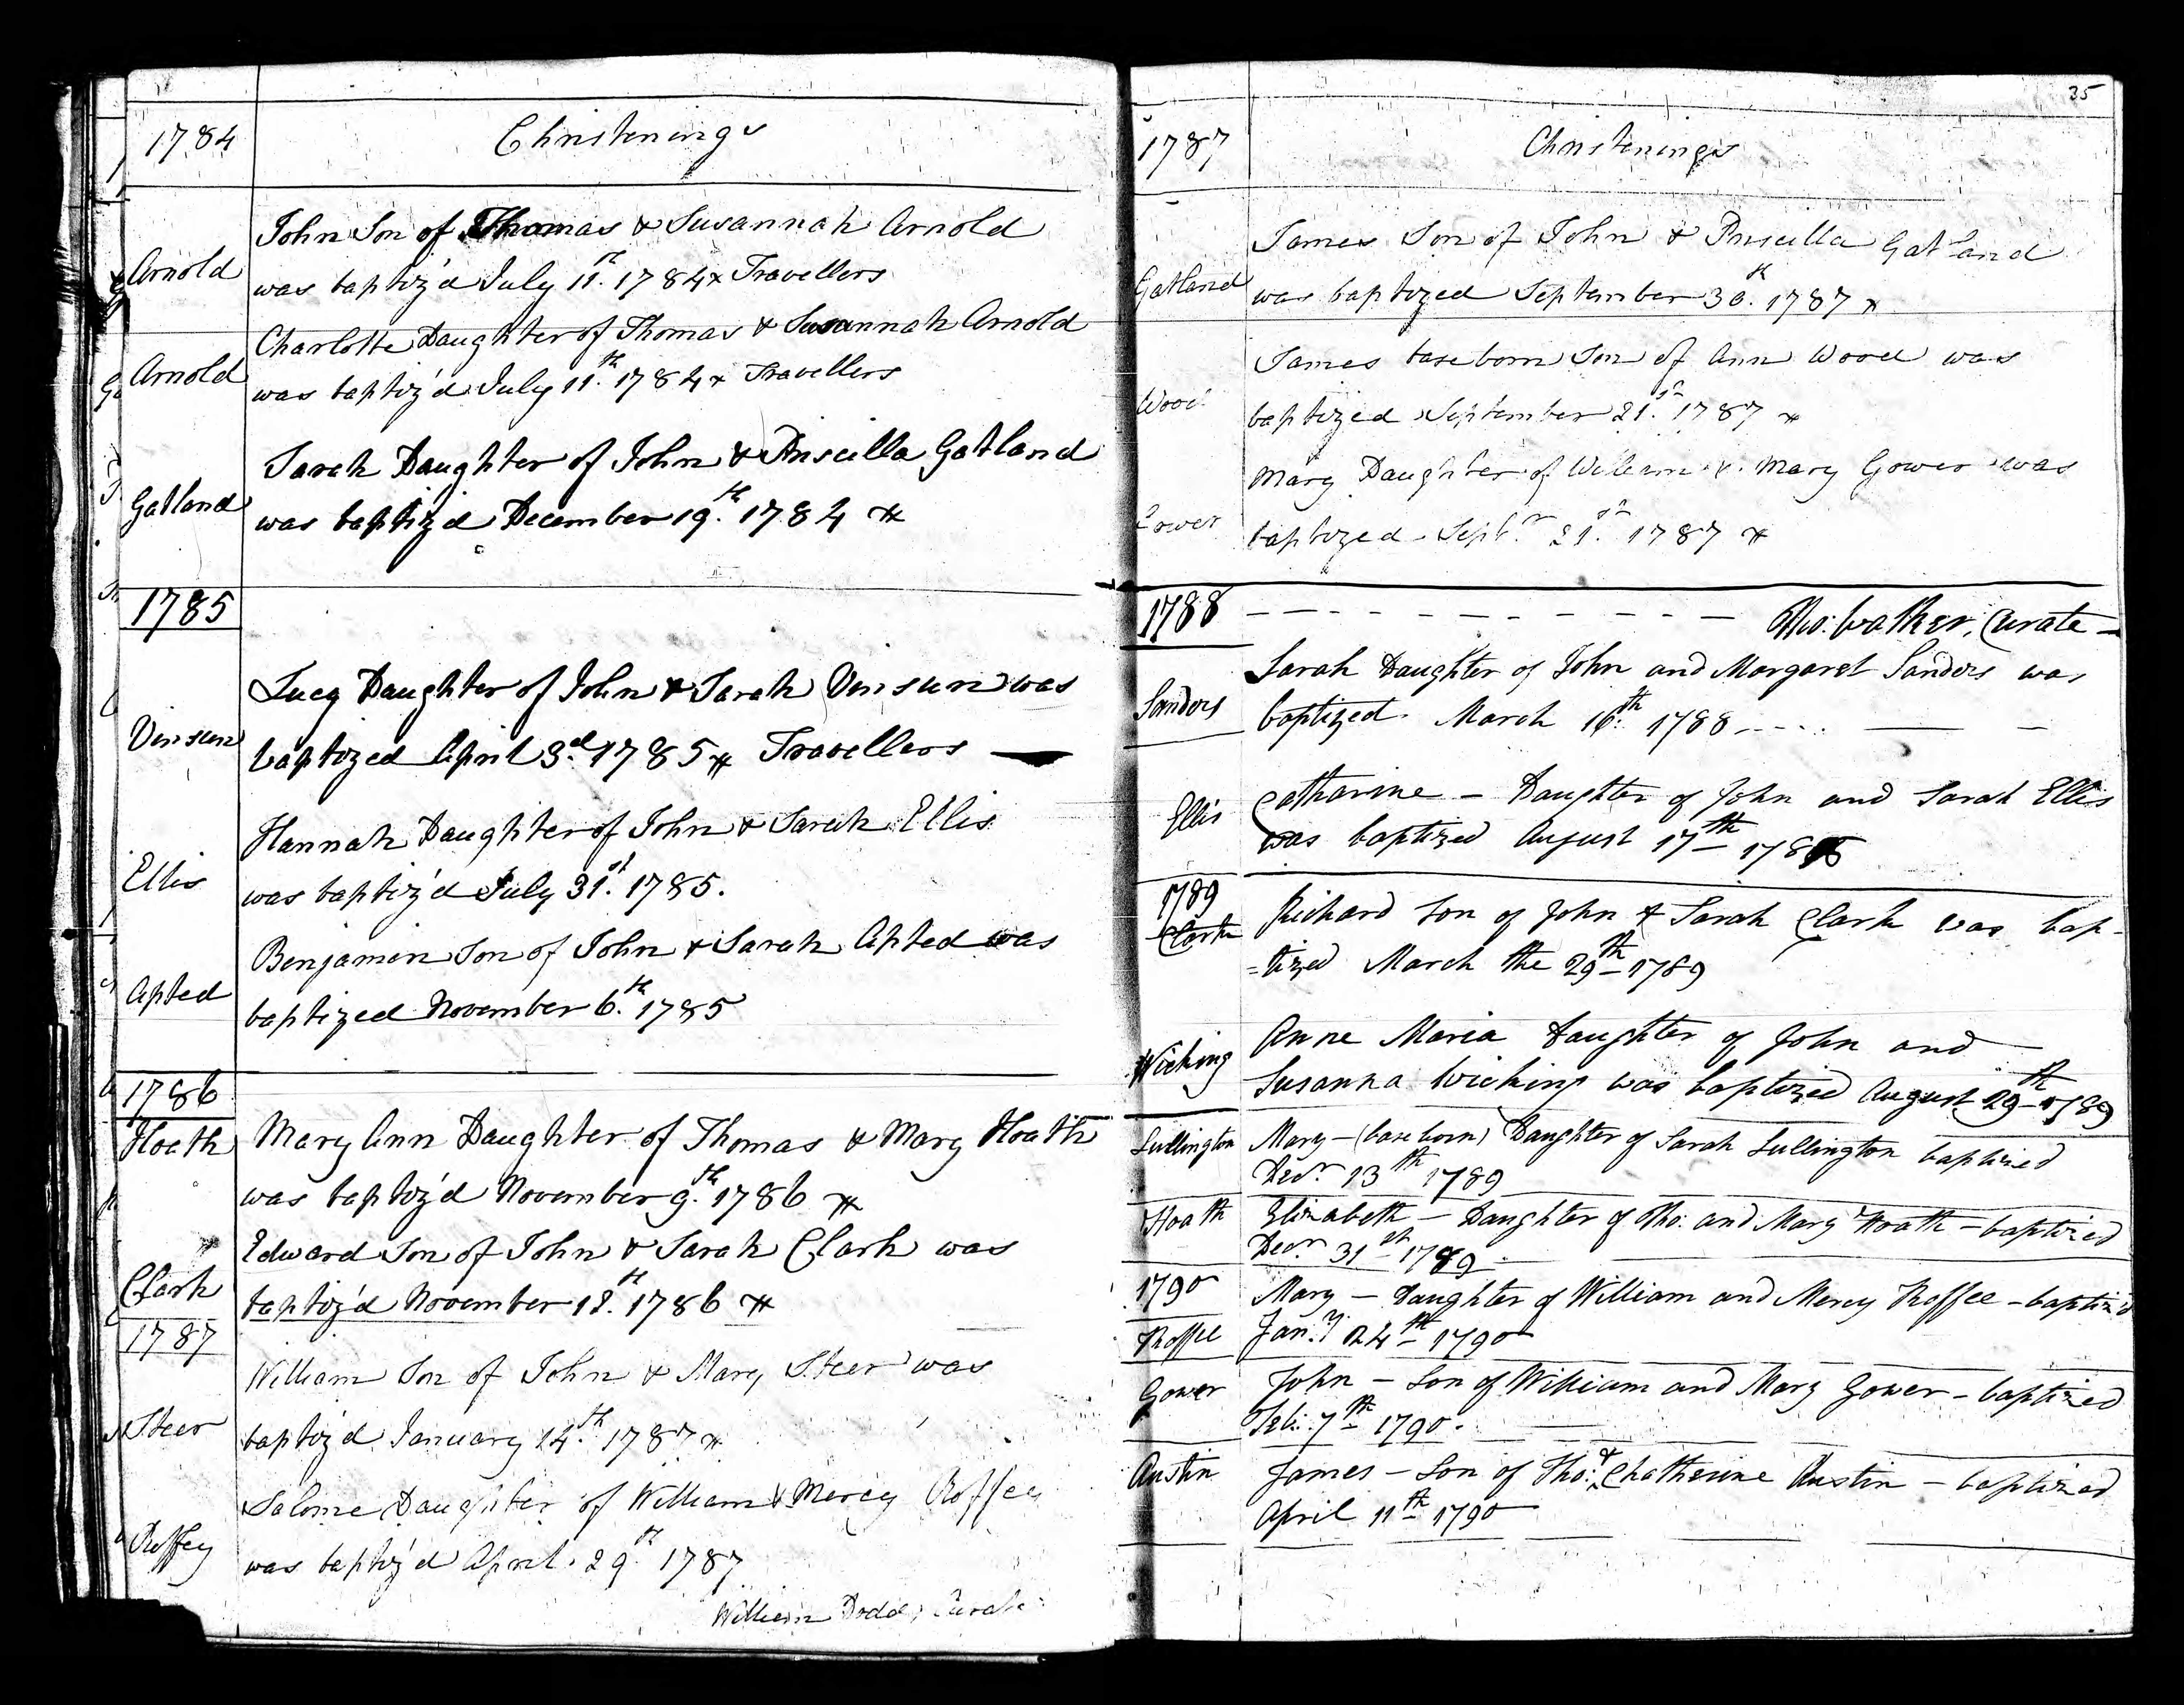 1784 Christenings
John Son of Thomas & Susannah Arnold
Arnold was baptiz'd July 11th. 1784 x Travellers
Charlotte Daughter of Thomas & Susannah Arnold
Arnold was baptiz'd July 11th. 1784 x Travellers
Sarah Daughter of John & Priscilla Gatland
Gatland was baptiz'd December 19th. 1784 x
1785
Lucy Daughter of John & Sarah Vinsun was
Vinsun baptized April 3d. 1785 x Travellers
Hannah Daughter of John & Sarah Ellis
Ellis was baptiz'd July 31st. 1785.
Benjamin Son of John & Sarah Apted was
Apted baptized November 6th. 1785
1786
Hoath Mary Ann Daughter of Thomas & Mary Hoath
was baptiz'd November 9th. 1786 x
Edward Son of John & Sarah Clark was
Clark baptiz'd November 12th. 1786 x
1787
William Son of John & Mary Steer was
Steer baptiz'd January 14th. 1787 x
Salome Daughter of William & Mercy Roffey
Roffey was baptiz'd April 29th 1787
William Dodd, Curate
35
1787 Christenings
James Son of John & Priscilla Gatland
Gatland was baptized September 30th. 1787 x
James base born Son of Ann Wood was
Wood baptized September 21st. 1787 x
Mary Daughter of William & Mary Gower was
Gower baptized Septr. 21st. 1787 x
1788 - - - - - - - - - - - Tho: Walker, Curate -
Sarah Daughter of John and Margaret Sanders was
Sanders baptized. March 16th. 1788 - - - -
Ellis Catharine - Daughter of John and Sarah Ellis
was baptized August 17th 1788
1789
Clark Richard Son of John & Sarah Clark was bap-
=tized March the 29th 1789
Anne Maria Daughter of John and
Wicking Susanna Wicking was baptized August 29th 1789
Sullington Mary - (base born) Daughter of Sarah Sullington baptized
Decr. 13th 1789
Hoath Elizabeth - Daughter of Tho: and Mary Hoath - baptized
Decr. 31st 1789
1790 Mary - Daughter of William and Mercy Roffee - baptiz'd
Roffee Jany. 24th 1790
Gower John - Son of William and Mary Gower - baptized
Feb: 7th 1790.
Austin James - Son of Tho: & Chatherine Austin - baptized
April 11th 1790